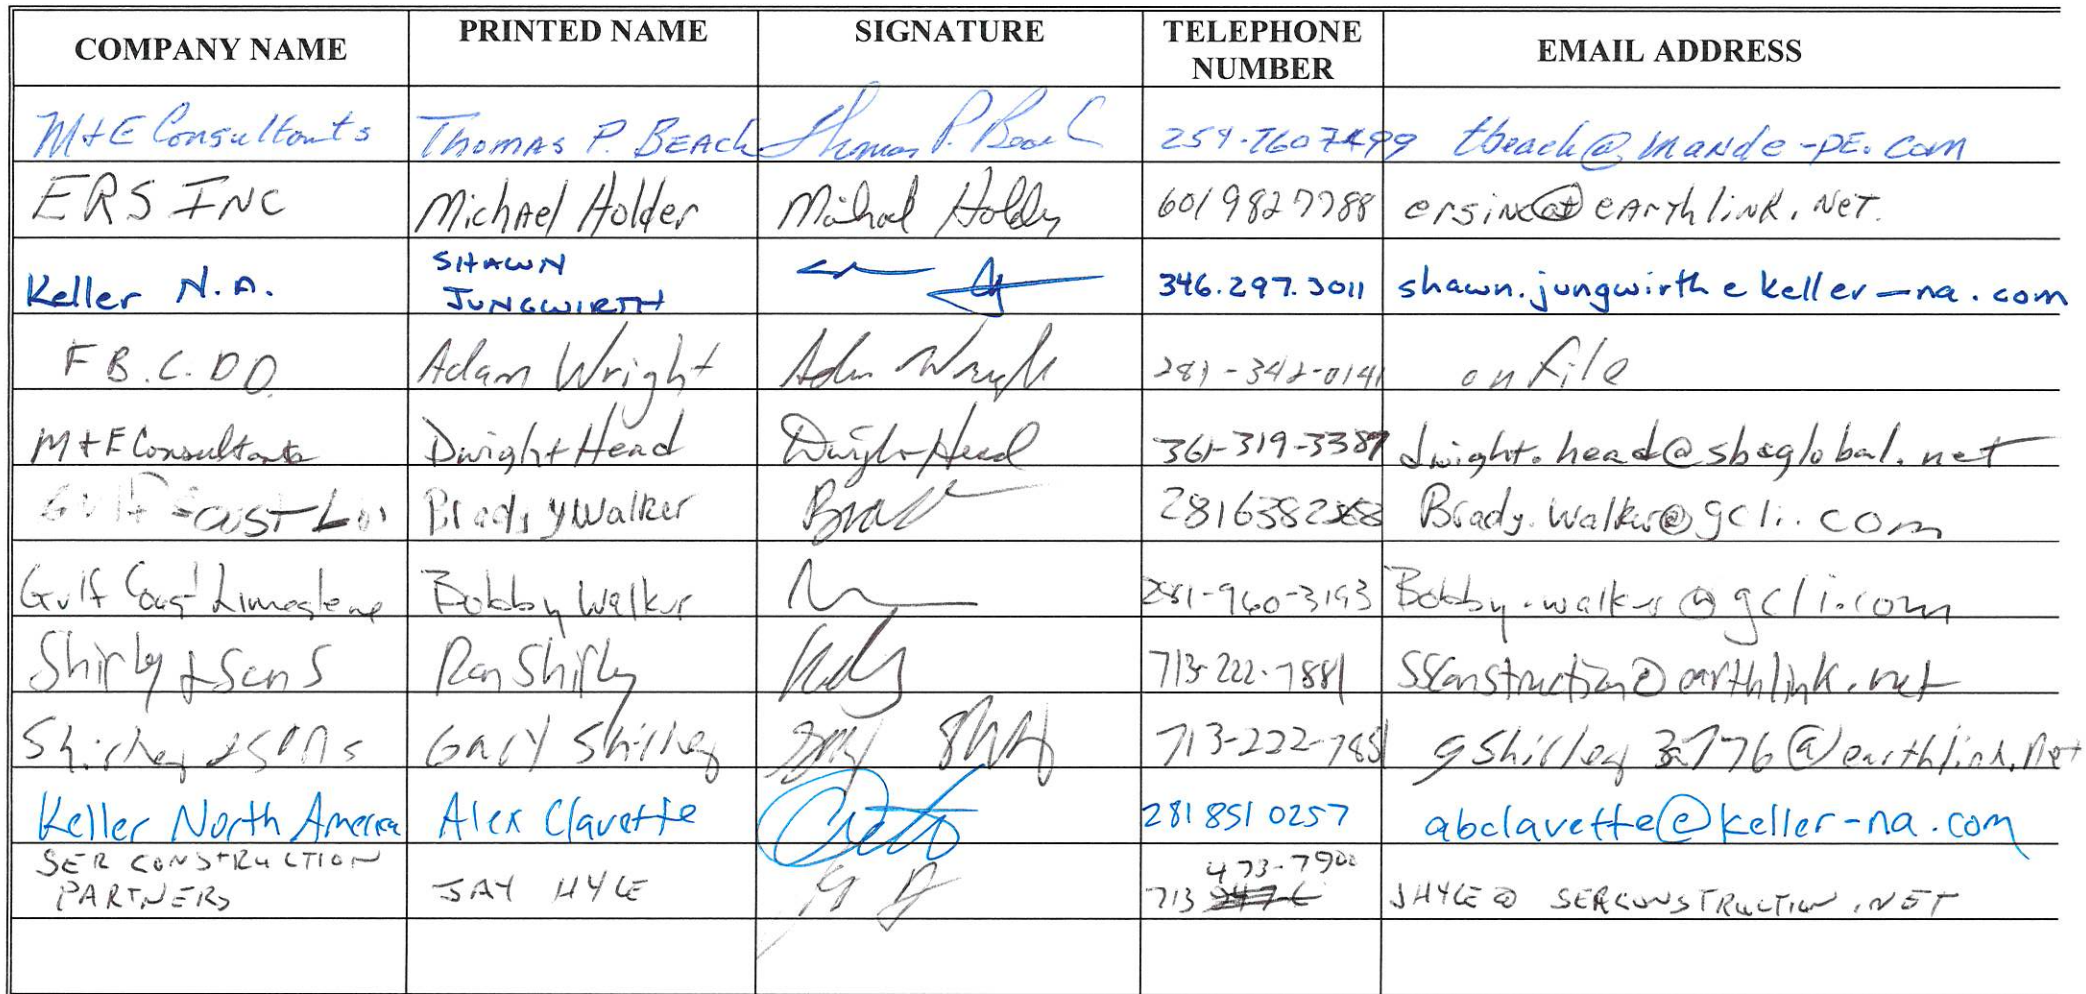 COMPANY NAME PRINTED NAME SIGNATURE TELEPHONE NUMBER EMAIL ADDRESS
M+E Consultants THOMAS P. BEACH Thomas P. Beach 254-7607499 tbeach@mande-PE.com
ERS INC Michael Holder Michael Holder 601 982 7788 ersinc@earthlink.NET.
Keller N.A. SHAWN JUNGWIRTH 346.297.3011 shawn.jungwirth@keller-na.com
F B.C.D D. Adam Wright Adam Wright 281-342-0141 on file
M+E Consultants Dwight Head Dwight Head 361-319-3387 dwight.head@sbcglobal.net
Gulf Coast Brady Walker 281638 Brady.Walker@gcli.com
Gulf Coast Limestone Bobby Walker 281-960-3193 Bobby.walker@gcli.com
Shirley & Sons Ron Shirley 713-222-7881 SSConstruction@earthlink.net
Shirley & SONS Gary Shirley 713-222-7881 gshirley 3776@earthlink.Net
Keller North America Alex Clavette 281 851 0257 abclavette@keller-na.com
SER CONSTRUCTION PARTNERS JAY HYLE 713 473-7900 JHYLE@ SERCONSTRUCTION.NET